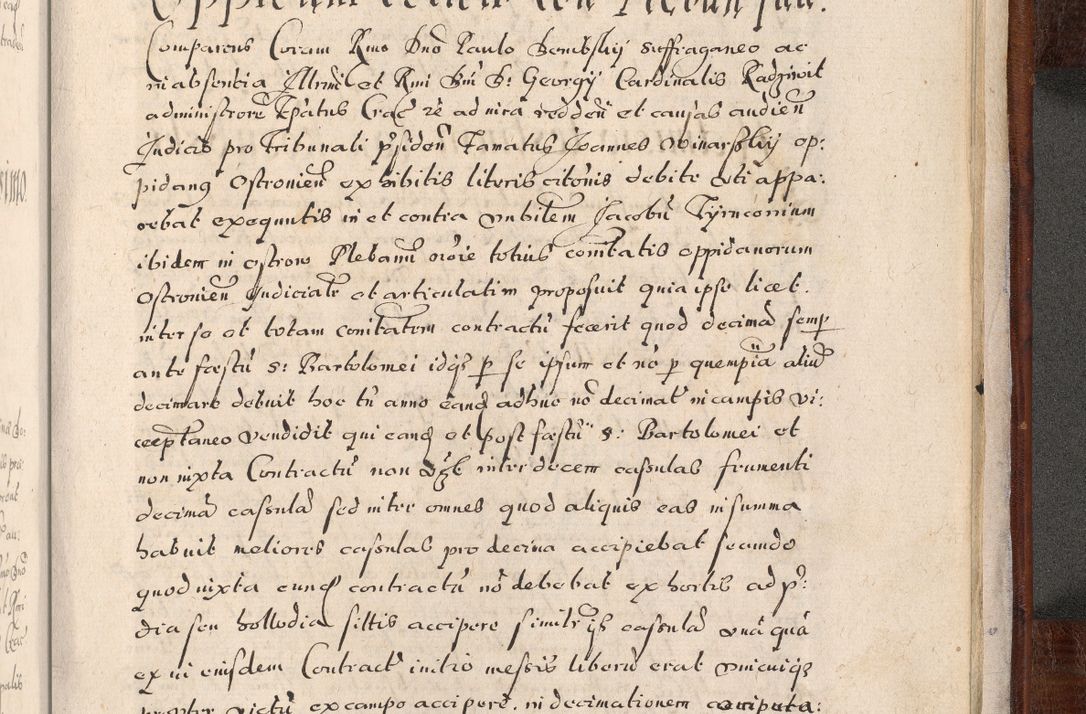 Comparens Coram Rmo Dno Paulo Dembskij suffraganeo ac
in absentia Illrmi et Rmi Dni D: Georgij Cardinalis Radziwil
administrore Epatus Crac re ad infra redden et causas audien
Judicio pro Tribunali psiden Famatus Joannes Winarskij op:
pidang Ostronien exhibitis literis citonis debite uti appa:
rebat exequutis in et contra vnbilem Jacobu
ibidem in Ostrow Plebanu noie totius comitatis oppidanorum
Ostronien Judicialr et articulatim proposuit quia ipse licet.
inter se et totam comitatem contractu fecerit quod decima semp
ante festu S: Bartolomei idqz p se ipsum et no p quempia aliu
decimare debuit hoc tn anno eandq adhuc no decimat in campis vi:
ceptaneo vendidit qui eandq et post festu S: Bartolomei et
non iuxta Contractu nan inter decem cassulas frumenti
decima cassula sed inter omnes quod aliquis eas in summa
habuit meliores cassulas pro decima accipiebat secundo
quod iuxta eundq contractu no debebat ex hortis ad p:
dia seu hollodia sittis accipere similr ijs cassula vna qua
ex vi eiusdem Contract initio messis liberu erat vnicuiqz
propter victu ex campo accipere, in decimationem accipita: